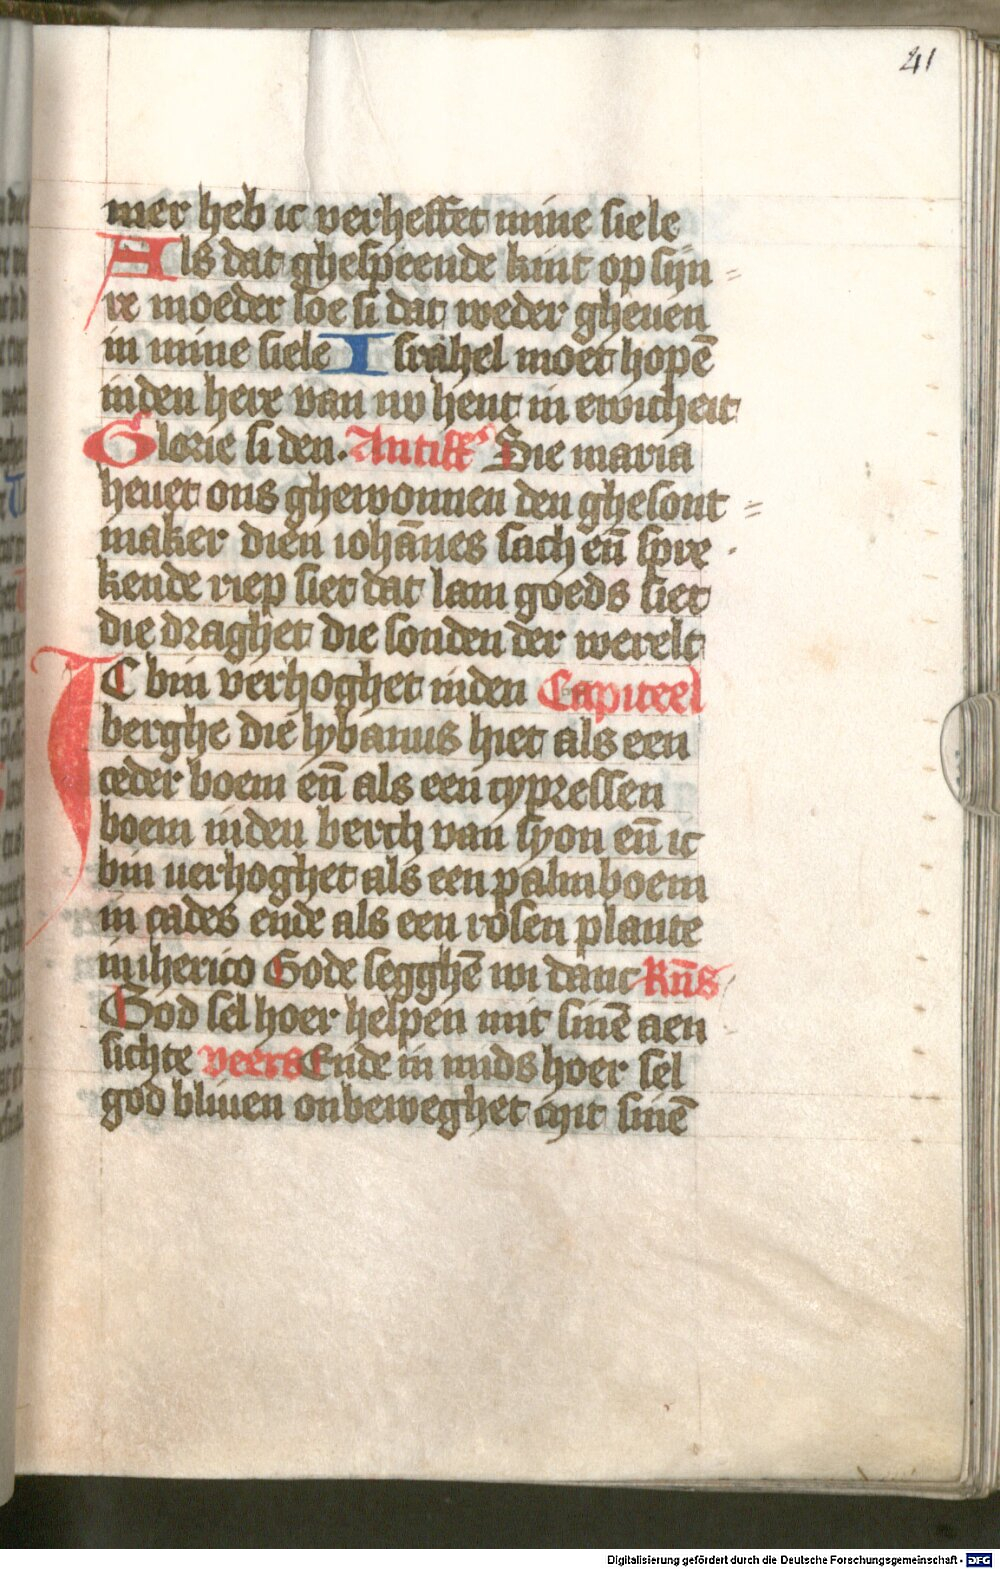 41
mer heb ic verheffet mine siele
Als dat ghespeende kint op sijn=
re moeder soe si dat weder gheuen
in mine siele Israhel moet hopē
inden here van nv hent in ewicheit
Glorie si den. Antiff Die maria
heuet ons ghewonnen den ghesont=
maker dien iohānes sach eñ spre
kende riep siet dat lam goeds siet
die draghet die sonden der werelt
IC bin verhoghet inden Capiteel
berghe die lybanus hiet als een
ceder boem eñ als een cypressen
boem inden berch van syon eñ ic
bin uerhoghet als een palmboem
in cades ende als een rosen plante
in iherico Gode segghē wi danc Rn̄s
God sel hoer helpen mit sinē aen
sichte veers Ende in mids hoer sel
god bliuen onbeweghet mit sinē
Digitalisierung gefördert durch die Deutsche Forschungsgemeinschaft - DFG